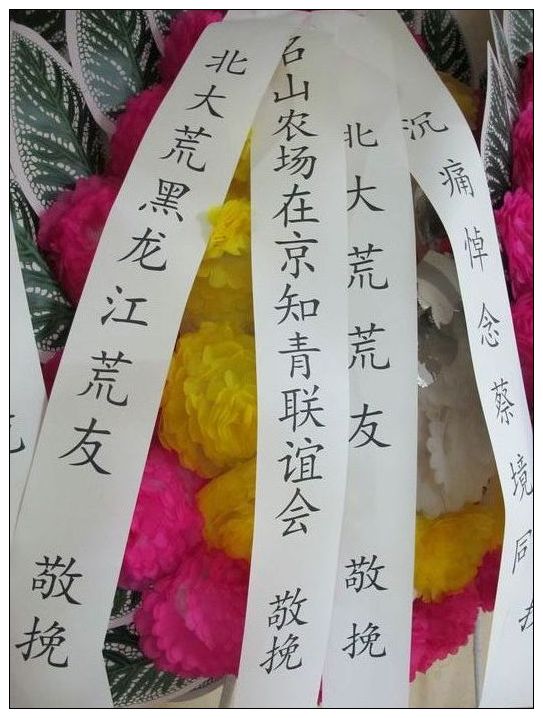 北大荒黑龙江荒友 敬挽
石山农场在京知青联谊会 敬挽
北大荒荒友 敬挽
沉痛悼念蔡境同志